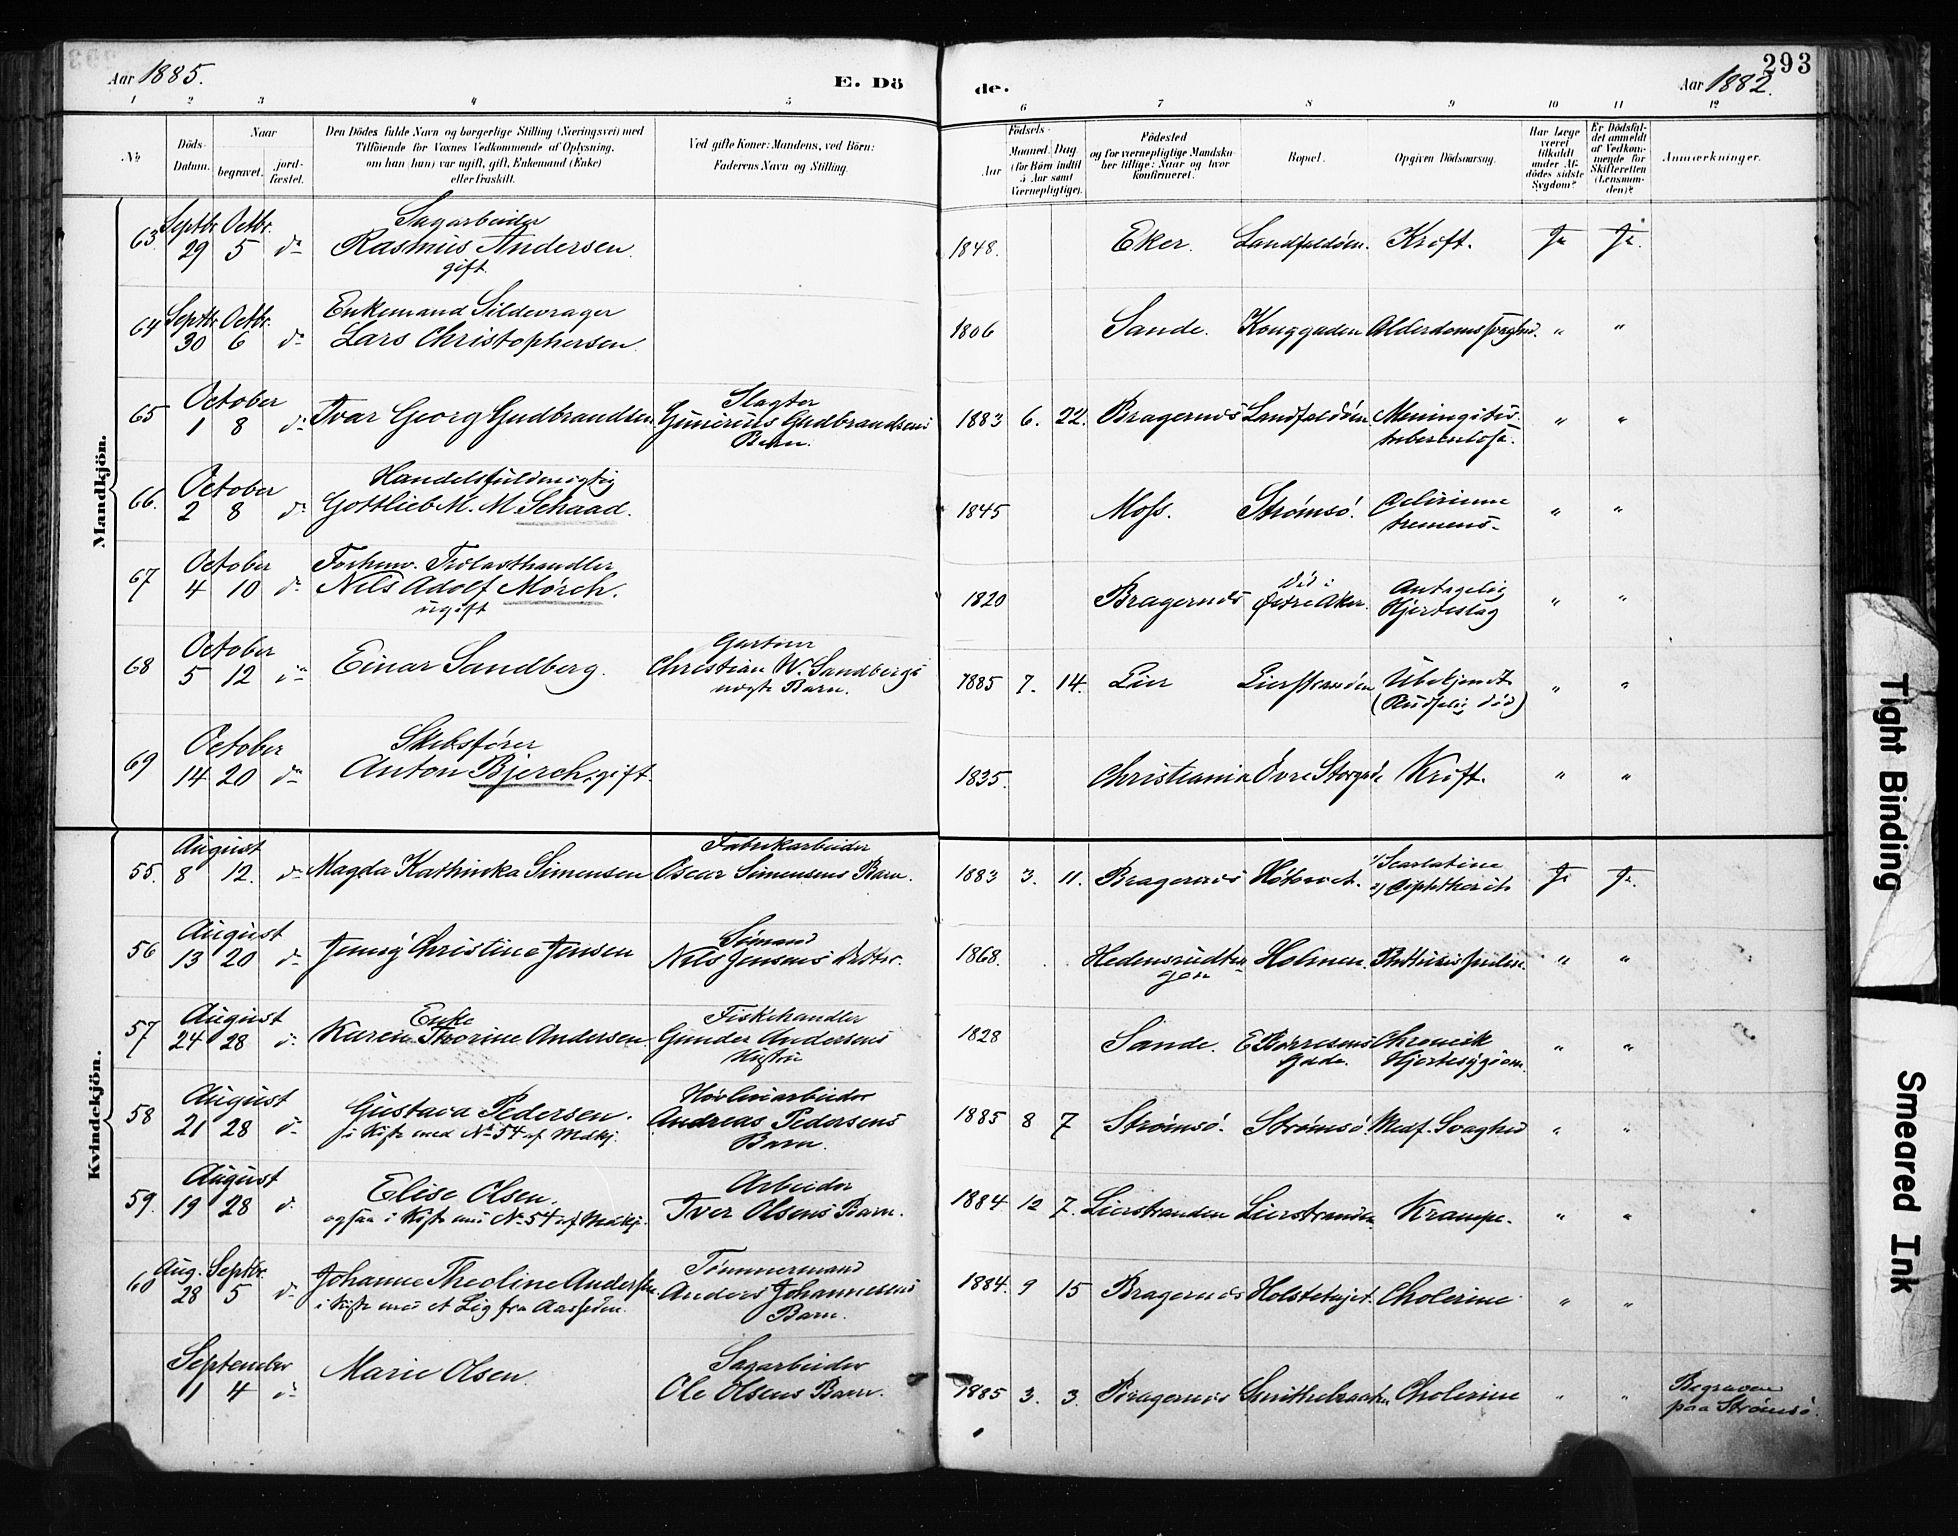 293
Aar 1885.
E. Dö
de.
Aar 1882.
1 2 3 4 5 6 7 8 9 10 11 12
No
Döds-Datum.
Naar
begravet.
jord-fæstet.
Den Dödes fulde Navn og borgerlige Stilling (Næringsvei) med
Tilföiende for Voxnes Vedkommende af Oplysning,
om han (hun) var ugift, gift, Enkemand (Enke)
eller fraskilt.
Ved gifte Koner: Mandens, ved Börn:
Faderens Navn og Stilling.
Födsels-
Aar
Maaned
Dag
(for Börn indtil
5 Aar samt
Værnepligtige).
Födested
og for værnepligtige Mandskaber tillige: Naar og hvor
konfirmeret.
Bopæl.
Opgiven Dödsaarsag.
Har Læge
været
tilkaldt
under Afdödes sidste
Sygdom?
Er Dödsfaldet anmeldt
af Vedkommende for
Skifteretten
(Lensmanden)?
Anmærkninger.
Mandkjön.
63 Septbr. 29 Octbr. 5 do Sagarbeider
Rasmus Andersen
gift
1848. Eker. Landfaldöen. Kræft. Ja Ja.
64 Septbr. 30 Octbr. 6 do Enkemand Sildevrager
Lars Christophersen
1806 Sande. Konggaden Alderdomssvaghed. " "
65 October 1 8 do Ivar Georg Gudbrandsen
Slagter
Gunerius Gudbrandsens
Barn.
1883 6. 22. Bragernes Landfaldöen Meningitis
tuberculosa. " "
66. October 2 8 do Handelsfuldmægtig
Gottlieb M. M. Schaad.
1845 Moss. Strömsö. Delirium
tremens. " "
67 October 4 10 do Forhenv. Trælasthandler
Nils Adolf Mörch.
ugift
1820 Bragernes Död i
Östre Aker. Antagelig
Hjerteslag " "
68 October 5 12 do Einar Sandberg.
Gartner
Christian W. Sandbergs
uægte Barn.
1885 7. 14. Lier Lierstranden Ubekjendt
(Pludselig död) " "
69 October 14 20 do Skibsförer
Anton Bjerch, gift
1835. Christiania Övre Storgade Kræft. " "
Kvindekjön.
55. August 8 12. do Magda Kathinka Simensen
Fabrikarbeider
Oscar Simensens Barn.
1883 3. 11. Bragernes 1) Scarlatina
2) Diphtherit Ja Ja.
56 August 13 20 do Jenny Christine Jensen
Sömand
Nils Jensens Datter.
1868. Holmen. " "
57 August 24 28 do Enke
Karen Thorine Andersen
Fiskehandler
Gunder Andersens
Hustru
1828 Sande. E Börresens
Gade. Chronisk
Hjertesygdom. " "
58 August 21 28 do Gustava Pedersen.
i Kiste med No 54 af Mdkj.
Hövleriarbeider
Andreas Pedersens
Barn.
1885 8 7 Strömsö. Strömsö. Medf. Svaghed " "
59. August 19 28 do Elise Olsen.
ogsaa i Kiste med No 54 af Mdkj.
Arbeider
Iver Olsens Barn.
1884 12 7. Lierstranden Lierstranden Krampe. " "
60 Aug. 28 Septbr. 5 do Johanne Theoline Andersen
i Kiste med et Lig fra Aassiden.
Tömmermand
Anders Johannesens
Barn.
1884. 9 15 Bragernes Cholerine " "
September 1 4 do Marie Olsen.
Sagarbeider
Ole Olsens Barn.
1885 3. 3. Bragernes Cholerine " " Begraven
paa Strömsö.
Tight Binding
Smeared Ink